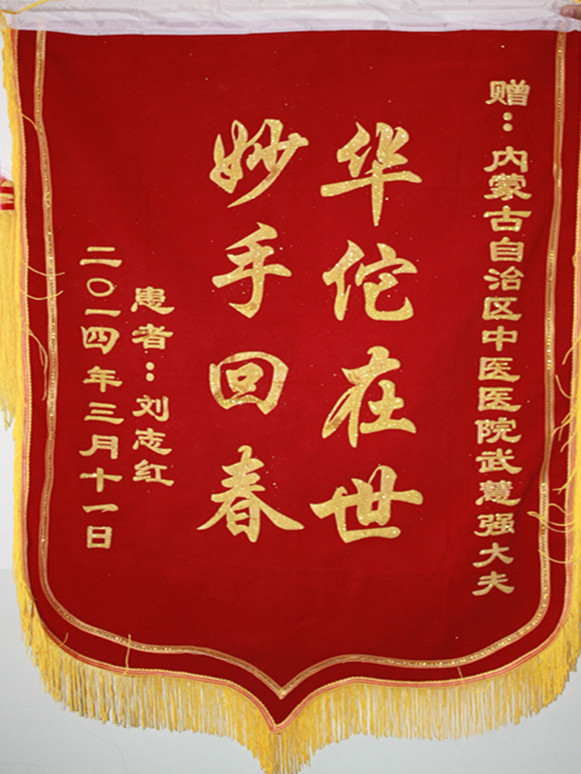 赠：内蒙古自治区中医医院武慧强大夫
华佗在世
妙手回春
患者：刘志红
二〇一四年三月十一日